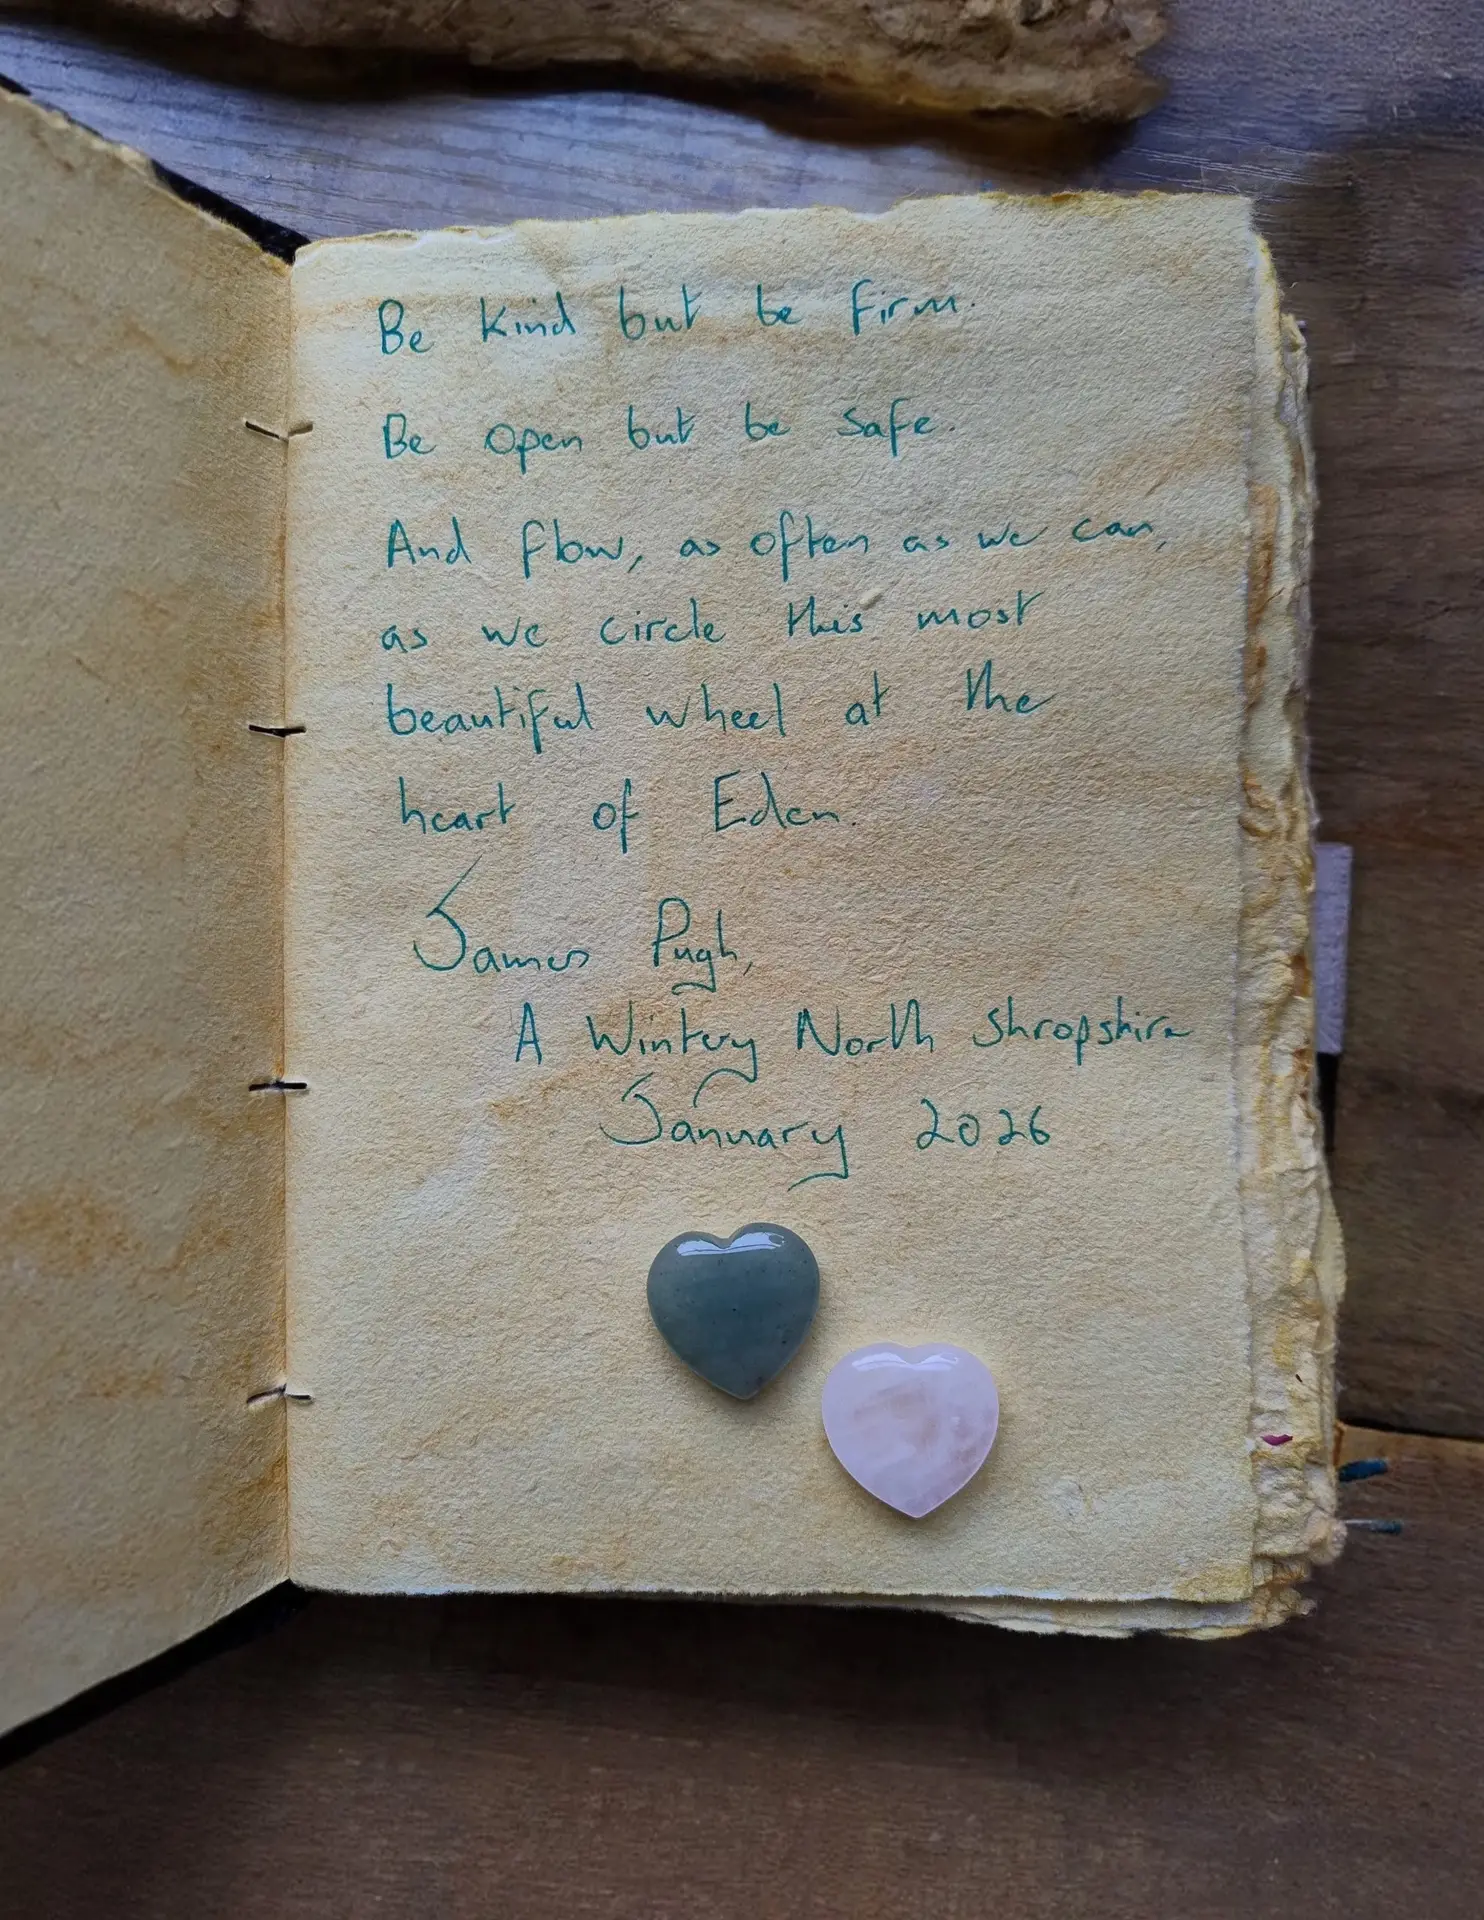 Be kind but be firm.
Be open but be safe.
And flow, as often as we can,
as we circle this most
beautiful wheel at the
heart of Eden.
James Pugh,
A Wintery North Shropshire
January 2026